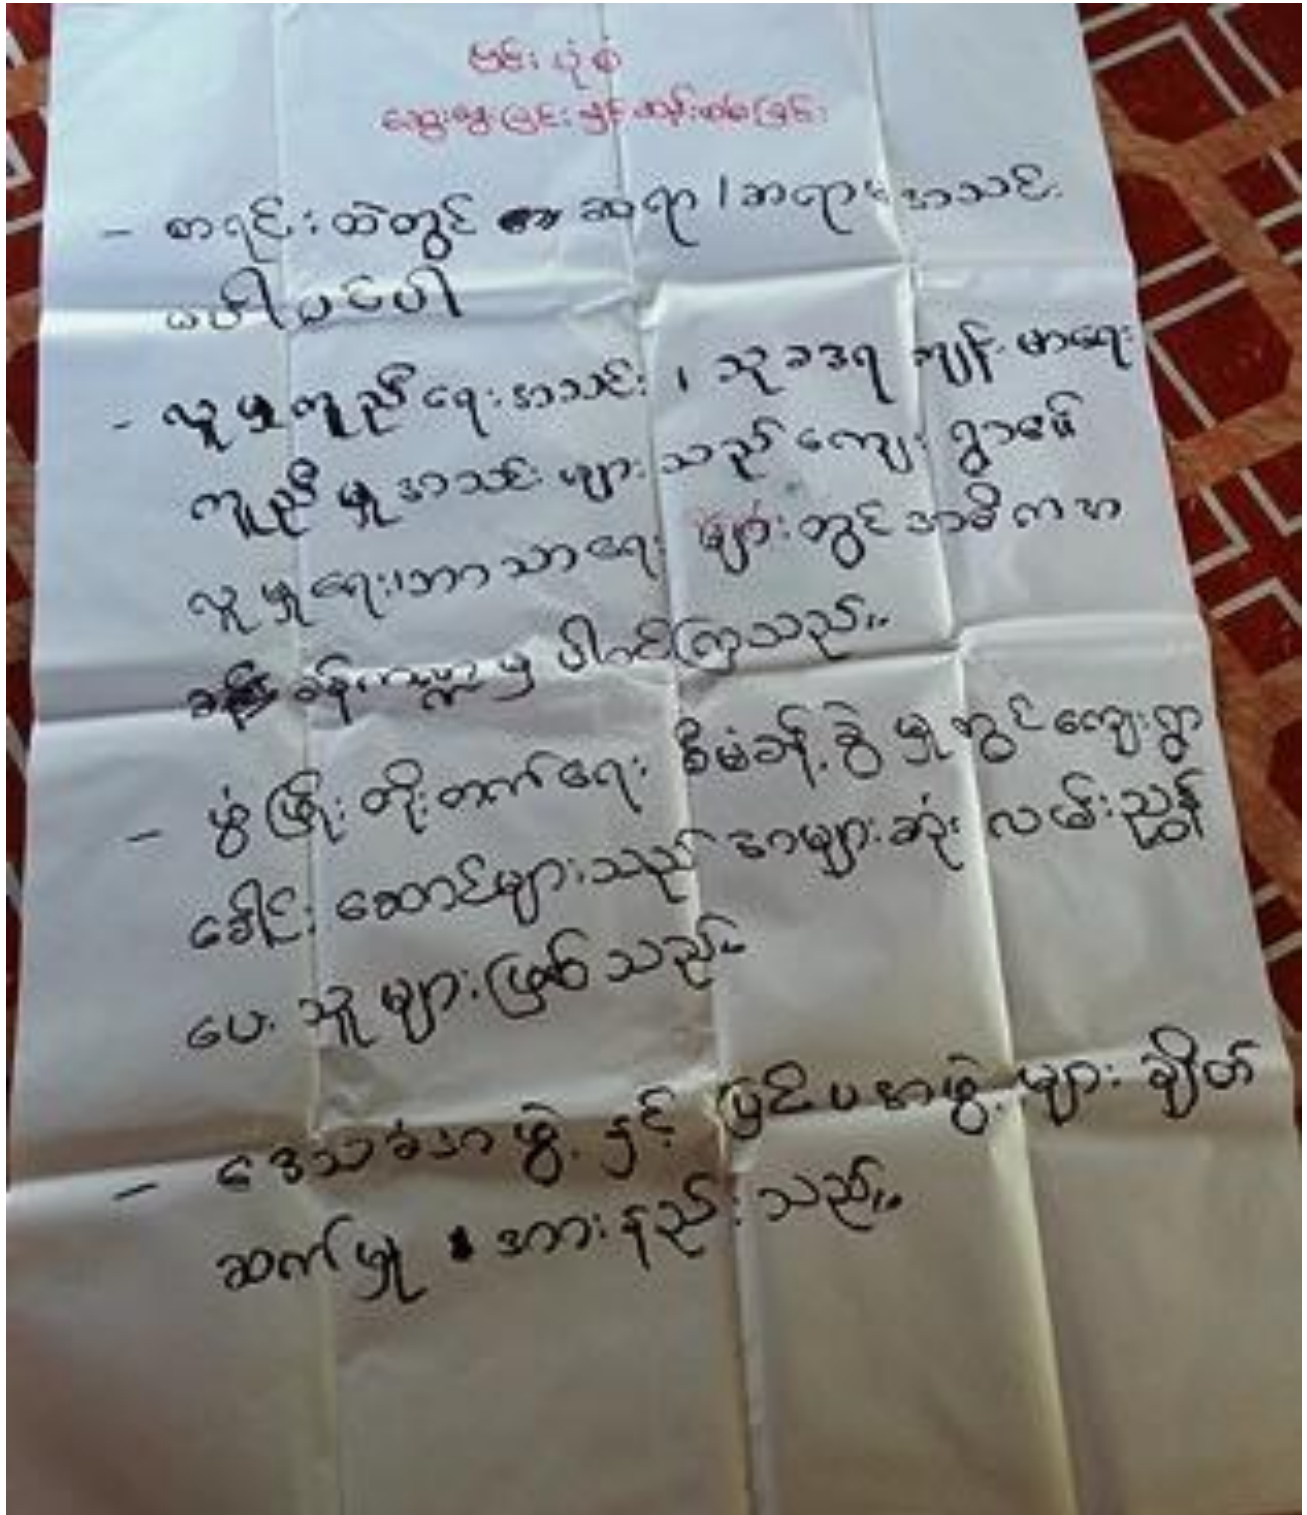 ဗင်းပုံစံ
ဆွေးနွေးခြင်းနှင့်ဆန်းစစ်ခြင်း
- စာရင်းထဲတွင် ဆရာ/ဆရာမအသင်း
မပါဝင်ပါ
- လူမှုကူညီရေးအသင်း၊ သုခဒရ ကျန်းမာရေး
ကူညီမှုအသင်းများသည် ကျေးရွာ၏
လူမှုရေး၊ဘာသာရေး များတွင် အဓိကအ
ခန်းကဏ္ဍမှ ပါဝင်ကြသည်။
- ဖွံ့ဖြိုးတိုးတက်ရေး စီမံခန့်ခွဲမှုတွင် ကျေးရွာ
ခေါင်းဆောင်များသည် အများဆုံး လမ်းညွှန်
ပေးသူများဖြစ်သည်။
- ဒေသခံအဖွဲ့နှင့် ပြင်ပအဖွဲ့များ ချိတ်
ဆက်မှု အားနည်းသည်။